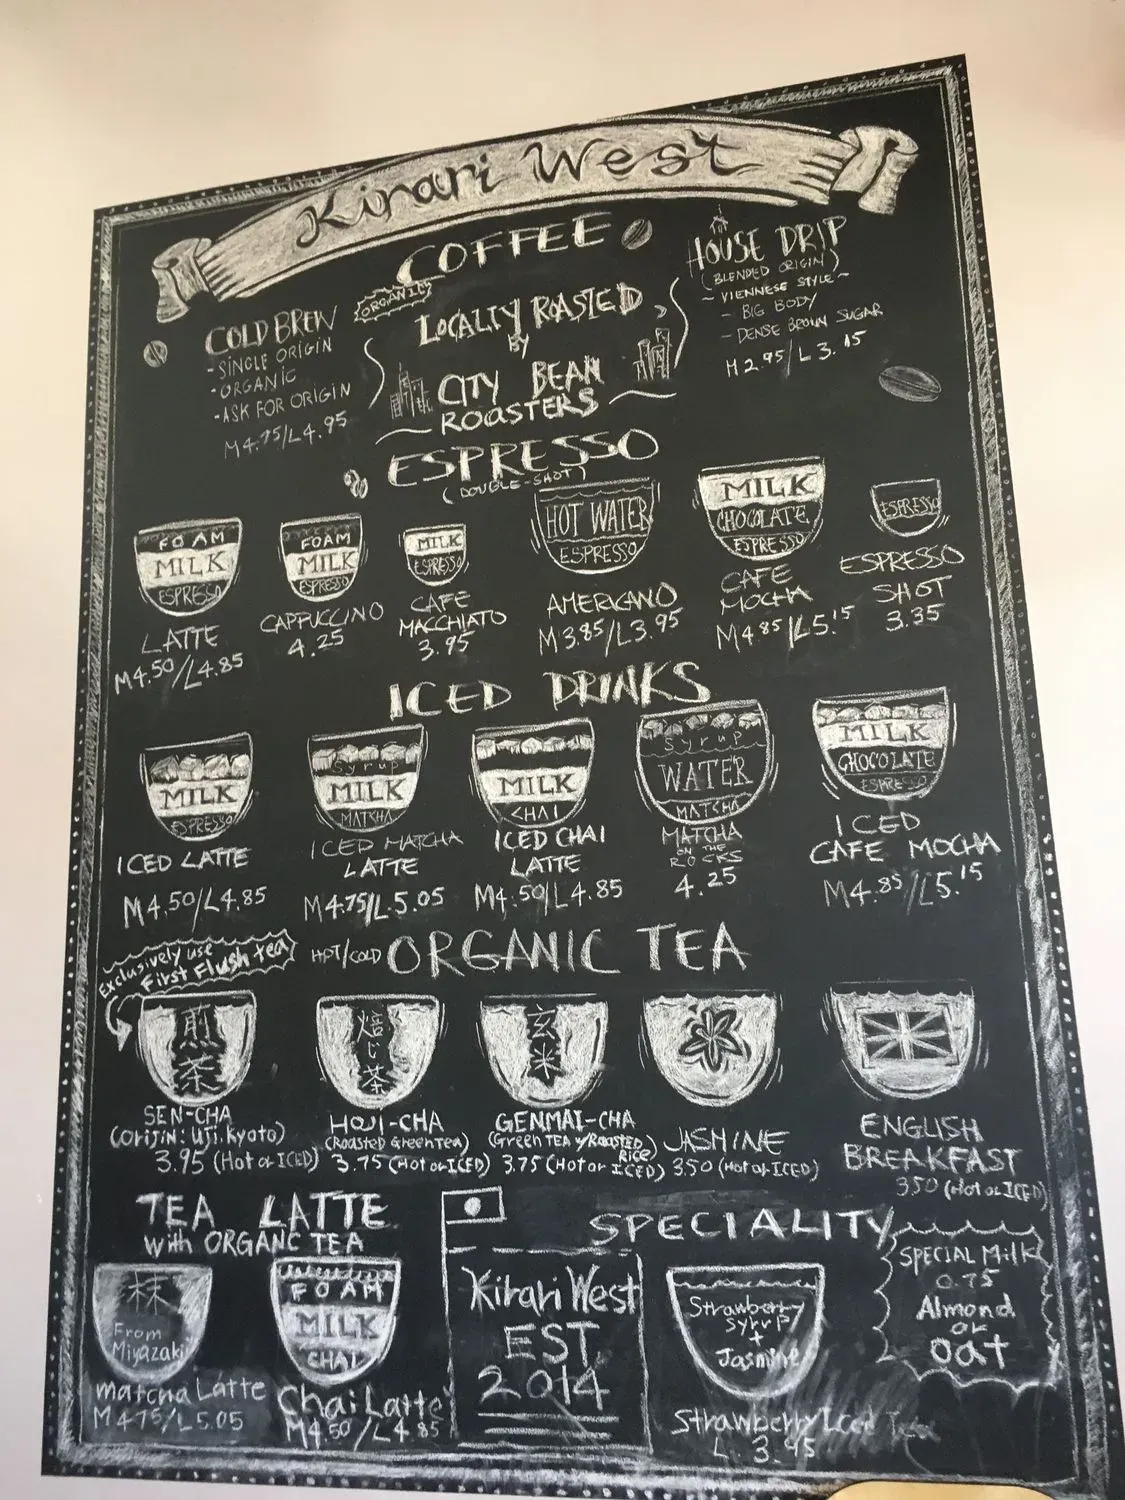 Kirari West
COFFEE
ORGANIC
LOCALLY ROASTED
BY
CITY BEAN
ROASTERS
COLD BREW
- SINGLE ORIGIN
- ORGANIC
- ASK FOR ORIGIN
M4.75/L4.95
HOUSE DRIP
(BLENDED ORIGIN)
~ VIENNESE STYLE ~
- BIG BODY
- DENSE BROWN SUGAR
M2.95/L3.15
ESPRESSO
(DOUBLE-SHOT)
FOAM
MILK
ESPRESSO
LATTE
M4.50/L4.85
FOAM
MILK
ESPRESSO
CAPPUCCINO
4.25
MILK
ESPRESSO
CAFE
MACCHIATO
3.95
HOT WATER
ESPRESSO
AMERICANO
M3.85/L3.95
MILK
CHOCOLATE
ESPRESSO
CAFE
MOCHA
M4.85/L5.15
ESPRESSO
ESPRESSO
SHOT
3.35
ICED DRINKS
MILK
ESPRESSO
ICED LATTE
M4.50/L4.85
Syrup
MILK
MATCHA
ICED MATCHA
LATTE
M4.75/L5.05
MILK
CHAI
ICED CHAI
LATTE
M4.50/L4.85
Syrup
WATER
MATCHA
MATCHA
ON THE
ROCKS
4.25
MILK
CHOCOLATE
ESPRESSO
ICED
CAFE MOCHA
M4.85/L5.15
Exclusively use
First Flush tea
HOT/COLD ORGANIC TEA
煎茶
SEN-CHA
(ORIJIN: Uji.Kyoto)
3.95 (Hot or ICED)
焙じ茶
HOJI-CHA
(Roasted Green tea)
3.75 (Hot or ICED)
玄米
GENMAI-CHA
(Green TEA w/Roasted
Rice)
3.75 (Hot or ICED)
JASMINE
350 (Hot or ICED)
ENGLISH
BREAKFAST
350 (Hot or ICED)
TEA LATTE
with ORGANC TEA
抹
From
Miyazaki
matcha Latte
M4.75/L5.05
FOAM
MILK
CHAI
Chai Latte
M4.50/L4.85
Kirari West
EST
2014
SPECIALITY
Strawberry
Syrup
+
Jasmine
Strawberry Iced Tea
L 3.95
SPECIAL Milk
0.75
Almond
or
oat